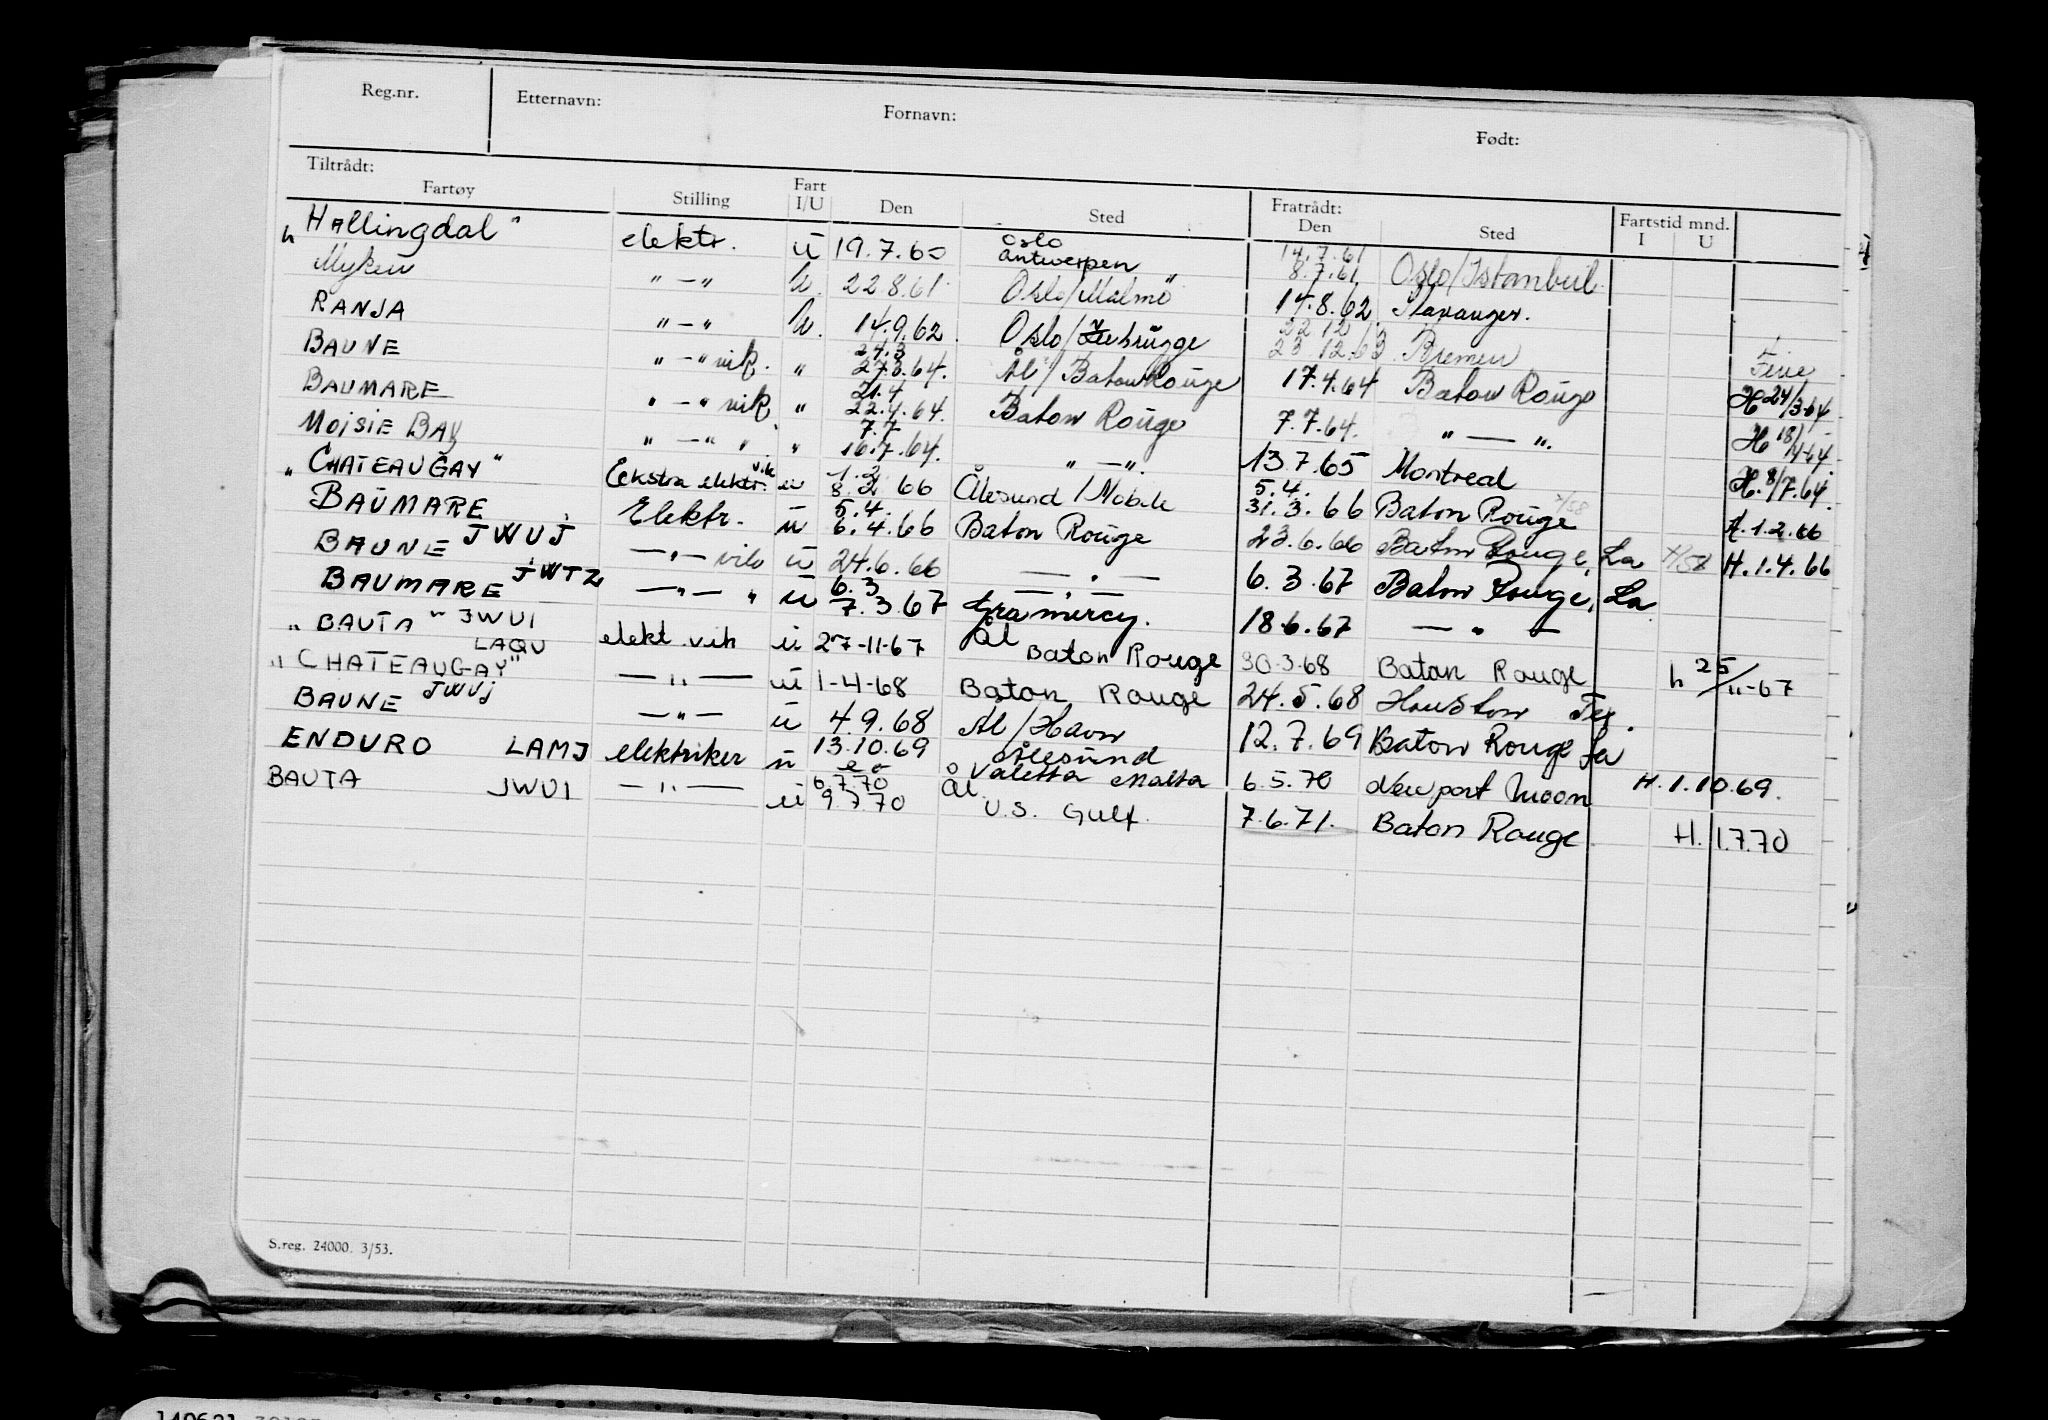 Reg.nr. Etternavn: Fornavn: Født:
Tiltrådt: Fratrådt:
Fartøy Stilling Fart I/U Den Sted Den Sted Fartstid mnd. I U
"Hallingdal" elektr. ū 19.7.60 Oslo Antwerpen 14.7.61 8.7.61 Oslo/Istanbul
Myken " - " U. 22.8.61 Oslo/Malmö 14.8.62 Stavanger.
RANJA " - " U. 14.9.62 Oslo/Zeebrügge 22 12 23 12.63 Bremen Ferie
BAUNE " - " vik. " 24.3 27.3.64. Ål/Baton Rouge 17.4.64 Baton Rouge H 24/3-64
BAUMARE " - " vik " 21.4 22.4.64. Baton Rouge 7.7.64. " — ". H 18/4-64
MOISIE BAY " - " " " 7.7 16.7.64. " — ". 13.7.65 Montreal H. 8/7.64.
"CHATEAUGAY" Ekstra elektr. vik u 1.2 8.2 66 Ålesund / Mobile 5.4. 31.3.66 Baton Rouge H.1.2.66
BAUMARE Elektr. ū 5.4. 6.4.66 Baton Rouge 23.6.66 Baton Rouge, La H.1.4.66
BAUNE JWUJ — " — vik ū 24.6.66 — " — 6.3.67 Baton Rouge, La
BAUMARE JWTZ — " — " ū 6.3 7.3.67 Gramercy. 18.6.67 — " —
"BAUTA" JWUI elekt. vik ū 27-11-67 Ål Baton Rouge 30.3.68 Baton Rouge h 25/11-67
"CHATEAUGAY" LAQU — " — ū 1-4-68 Baton Rouge 24.5.68 Houston Tex.
BAUNE JWUJ — " — ū 4.9.68 Ål/Havn 12.7.69 Baton Rouge La
ENDURO LAMJ elektriker ū 13.10.69 Ålesund Valetta Malta 6.5.70 Newport Moon H.1.10.69.
BAUTA JWUI — " — ū 6.7.70 9.7.70 Ål U.S. Gulf 7.6.71. Baton Rouge H. 1.7.70
S.reg. 24000. 3/53.